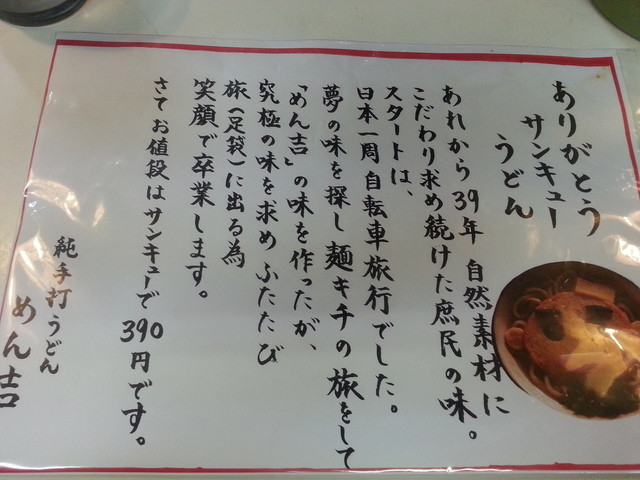 ありがとう
サンキュー
うどん
あれから39年 自然素材に
こだわり求め続けた庶民の味。
スタートは、
日本一周自転車旅行でした。
夢の味を探し麺キチの旅をして
「めん吉」の味を作ったが、
究極の味を求めふたたび
旅（足袋）に出る為
笑顔で卒業します。
さてお値段はサンキューで390円です。
純手打うどん
めん吉